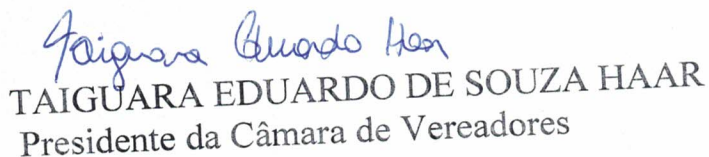 Taiguara Eduardo Haar
TAIGUARA EDUARDO DE SOUZA HAAR
Presidente da Câmara de Vereadores